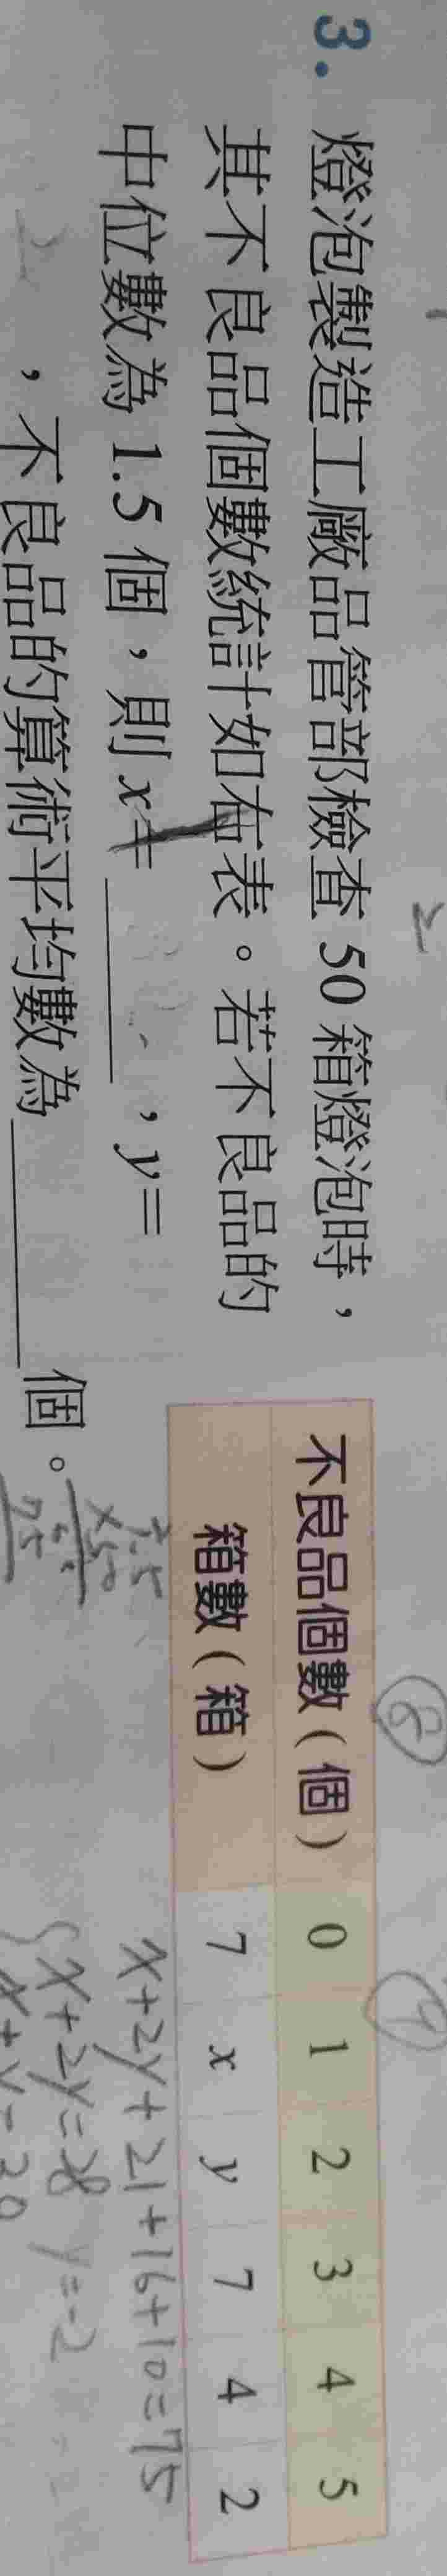 3. 燈泡製造工廠品管部檢查 50 箱燈泡時，
其不良品個數統計如右表。若不良品的
中位數為 1.5 個，則 x=______，y=
______，不良品的算術平均數為______個。
不良品個數（個） 0 1 2 3 4 5
箱數（箱） 7 x y 7 4 2
8
x+2y+21+16+10=75
x+2y=28 y=-2